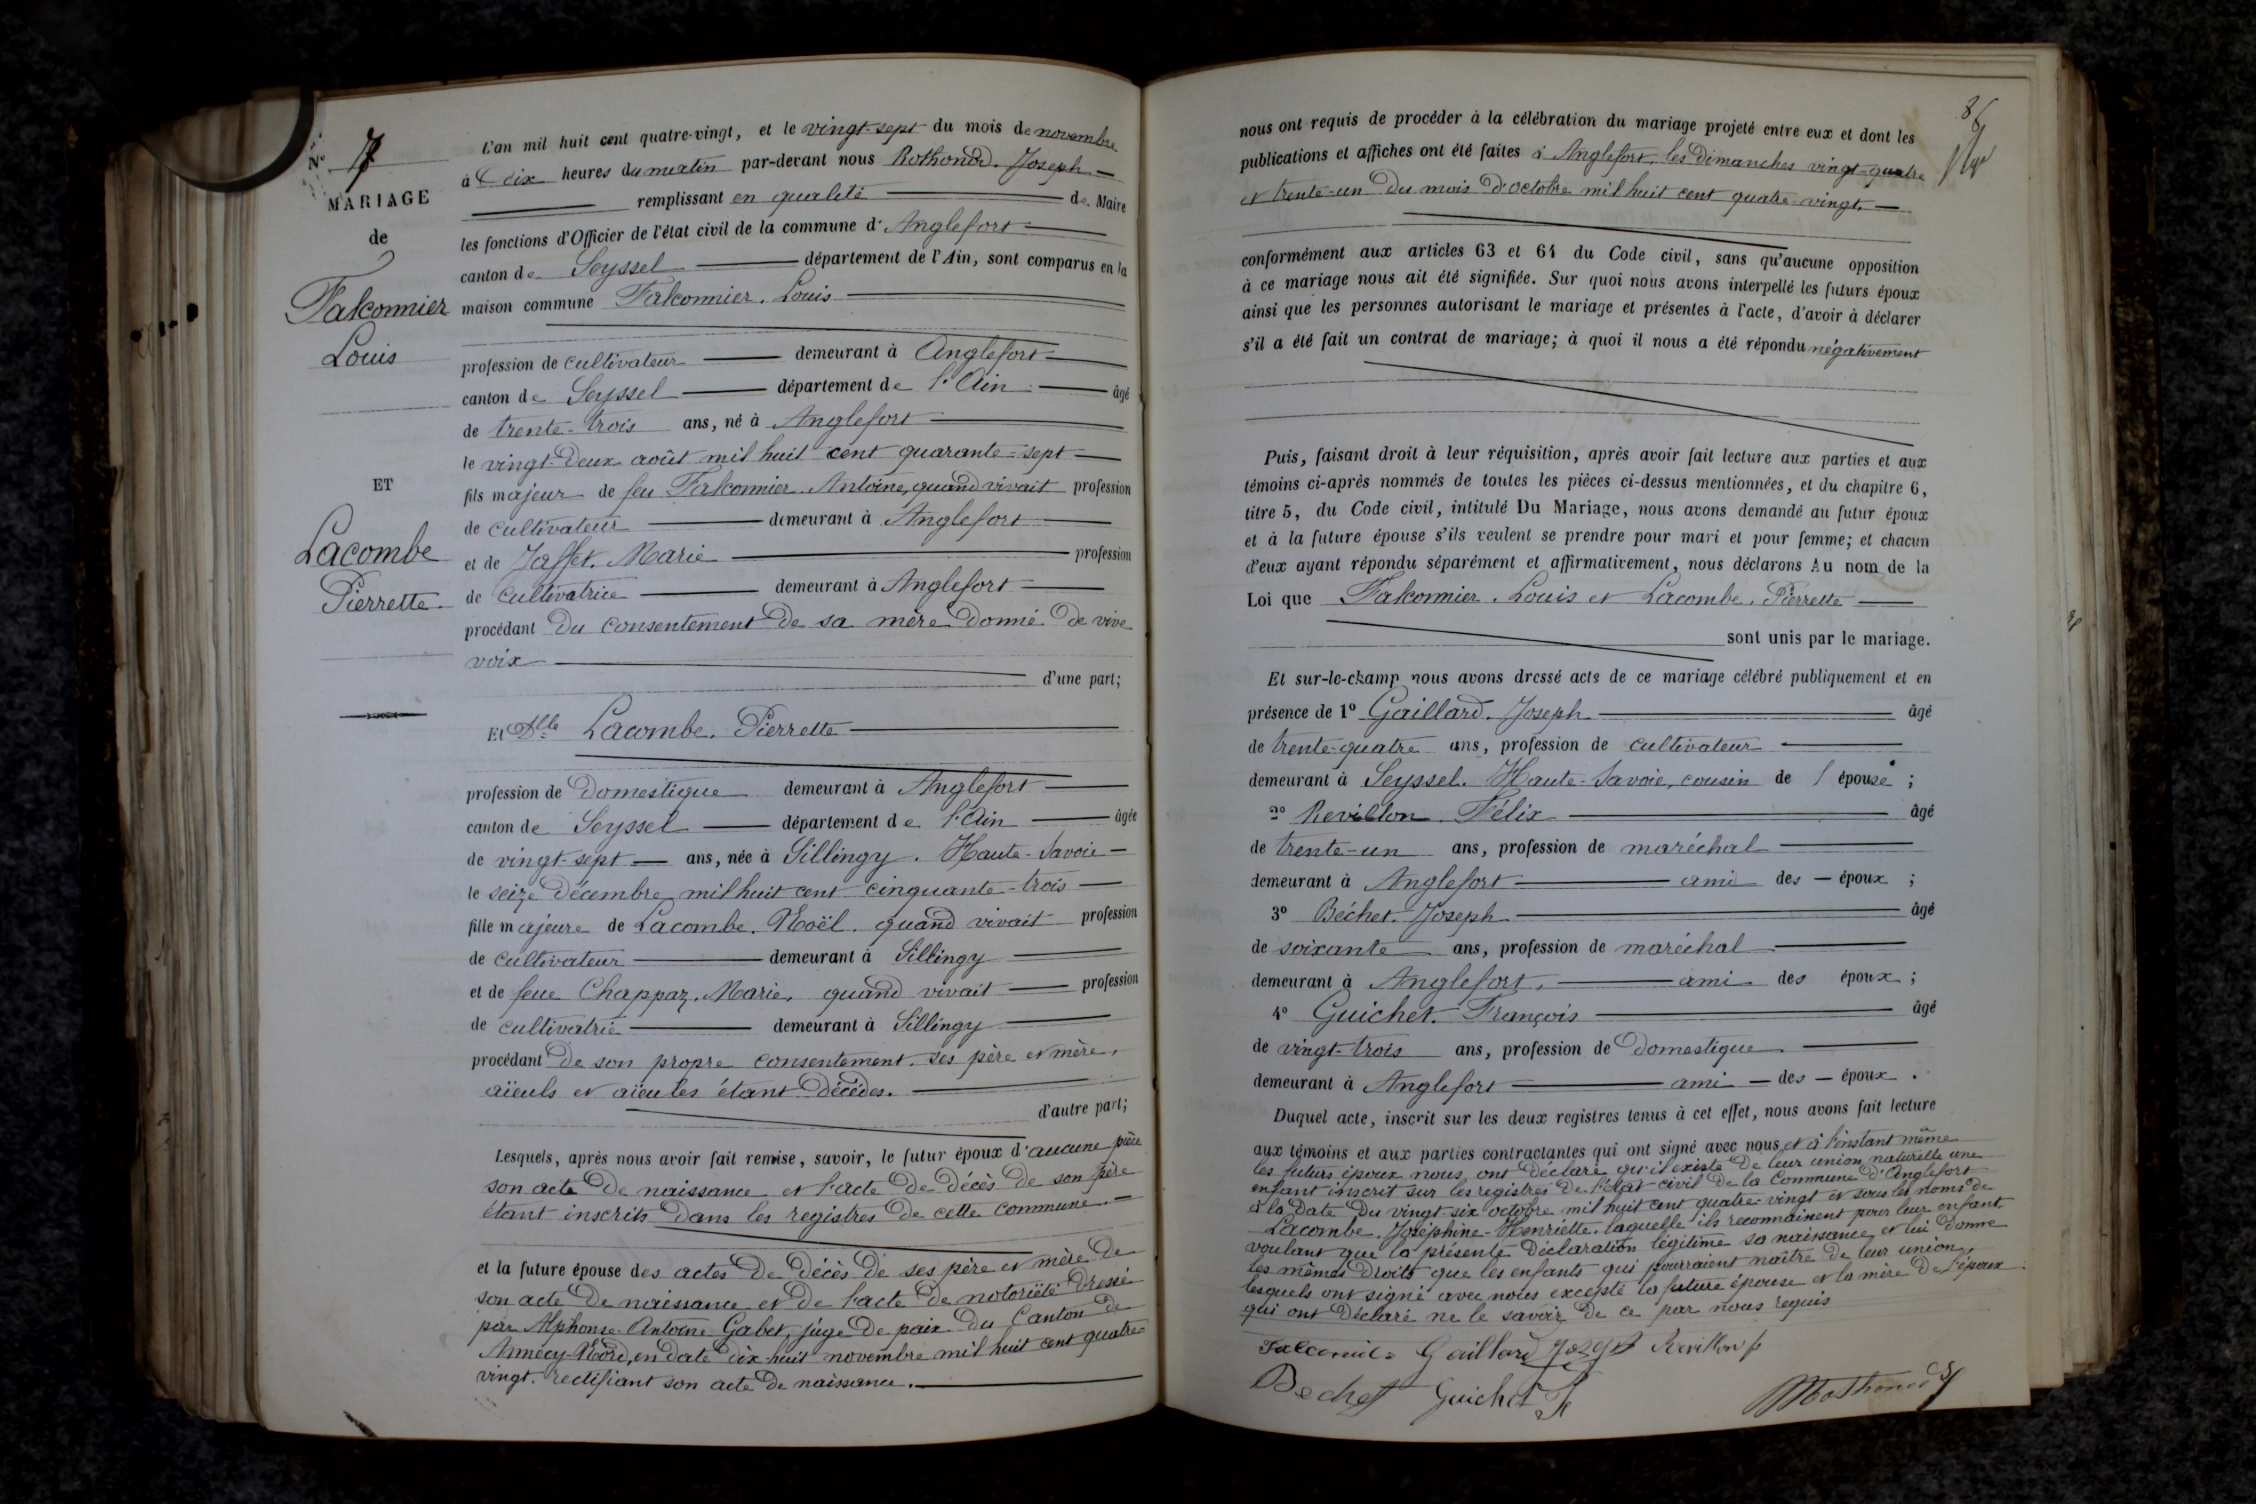 N° 7
MARIAGE
de
Falconnier
Louis
ET
Lacombe
Pierrette.
L'an mil huit cent quatre-vingt, et le vingt-sept du mois de novembre
à dix heures du matin par-devant nous Rothonod. Joseph
remplissant en qualité de Maire
les fonctions d'Officier de l'état civil de la commune d'Anglefort
canton de Seyssel département de l'Ain, sont comparus en la
maison commune Falconnier. Louis
profession de cultivateur demeurant à Anglefort
canton de Seyssel département de l'Ain âgé
de trente-trois ans, né à Anglefort
le vingt-deux août mil huit cent quarante-sept
fils majeur de feu Falconnier. Antoine, quand vivait profession
de cultivateur demeurant à Anglefort
et de Jaffet. Marie profession
de cultivatrice demeurant à Anglefort
procédant du consentement de sa mère donné de vive
voix
d'une part;
Et Dlle Lacombe. Pierrette
profession de domestique demeurant à Anglefort
canton de Seyssel département de l'Ain âgée
de vingt-sept ans, née à Sillingy. Haute-Savoie
le seize décembre mil huit cent cinquante-trois
fille majeure de Lacombe. Noël. quand vivait profession
de cultivateur demeurant à Sillingy
et de feue Chappaz. Marie, quand vivait profession
de cultivatrie demeurant à Sillingy
procédant de son propre consentement. ses père et mère,
aïeuls et aïeules étant décédés.
d'autre part;
Lesquels, après nous avoir fait remise, savoir, le futur époux d'aucune pièce
son acte de naissance et l'acte de décès de son père
étant inscrits dans les registres de cette commune.
et la future épouse des actes de décès de ses père et mère de
son acte de naissance et de l'acte de notoriété dressé
par Alphonse-Antoine Gabet, juge de paix du Canton de
Annecy-Nord, en date dix-huit novembre mil huit cent quatre-
vingt. rectifiant son acte de naissance.
86
nous ont requis de procéder à la célébration du mariage projeté entre eux et dont les
publications et affiches ont été faites à Anglefort, les dimanches vingt-quatre
et trente-un du mois d'octobre mil huit cent quatre-vingt.
conformément aux articles 63 et 64 du Code civil, sans qu'aucune opposition
à ce mariage nous ait été signifiée. Sur quoi nous avons interpellé les futurs époux
ainsi que les personnes autorisant le mariage et présentes à l'acte, d'avoir à déclarer
s'il a été fait un contrat de mariage; à quoi il nous a été répondu négativement
Puis, faisant droit à leur réquisition, après avoir fait lecture aux parties et aux
témoins ci-après nommés de toutes les pièces ci-dessus mentionnées, et du chapitre 6,
titre 5, du Code civil, intitulé Du Mariage, nous avons demandé au futur époux
et à la future épouse s'ils veulent se prendre pour mari et pour femme; et chacun
d'eux ayant répondu séparément et affirmativement, nous déclarons Au nom de la
Loi que Falconnier. Louis et Lacombe. Pierrette
sont unis par le mariage.
Et sur-le-champ nous avons dressé acte de ce mariage célébré publiquement et en
présence de 1° Gaillard. Joseph âgé
de trente-quatre ans, profession de cultivateur
demeurant à Seyssel. Haute-Savoie, cousin de l'épouse;
2° Revillon. Félix âgé
de trente-un ans, profession de maréchal
demeurant à Anglefort ami des époux;
3° Béchet. Joseph âgé
de soixante ans, profession de maréchal
demeurant à Anglefort. ami des époux;
4° Guichet. François âgé
de vingt-trois ans, profession de domestique
demeurant à Anglefort ami des époux.
Duquel acte, inscrit sur les deux registres tenus à cet effet, nous avons fait lecture
aux témoins et aux parties contractantes qui ont signé avec nous et à l'instant même
les futurs époux nous ont déclaré qu'il existe de leur union naturelle une
enfant inscrit sur les registres de l'état civil de la Commune d'Anglefort
à la date du vingt-six octobre mil huit cent quatre-vingt et sous les noms de
Lacombe. Joséphine-Henriette. laquelle ils reconnaissent pour leur enfant
voulant que la présente déclaration légitime sa naissance et lui donne
les mêmes droits que les enfants qui pourraient naître de leur union,
lesquels ont signé avec nous excepté la future épouse et la mère de l'époux
qui ont déclaré ne le savoir de ce par nous requis
Gaillard Joseph Revillon f
Bechet Guichet F Rothonod J